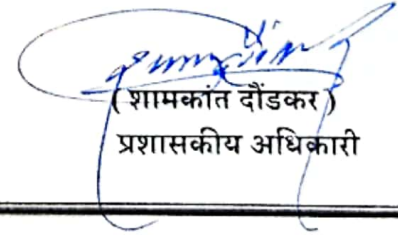 ( शामकांत दौंडकर )
प्रशासकीय अधिकारी